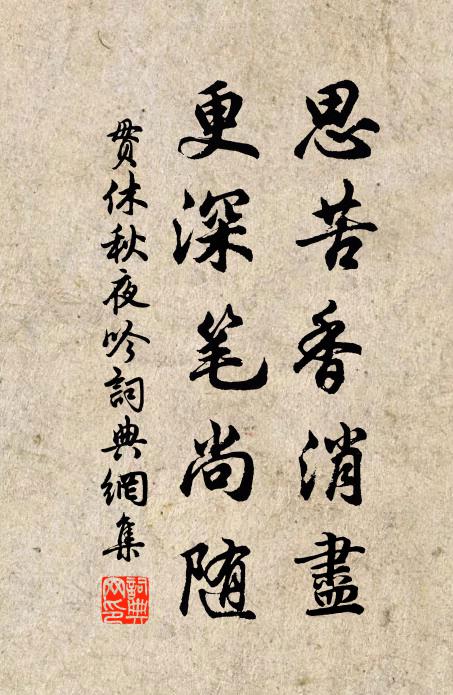 思苦香消盡
更深笔尚随
贯休秋夜吟詞典網集
詞典网印